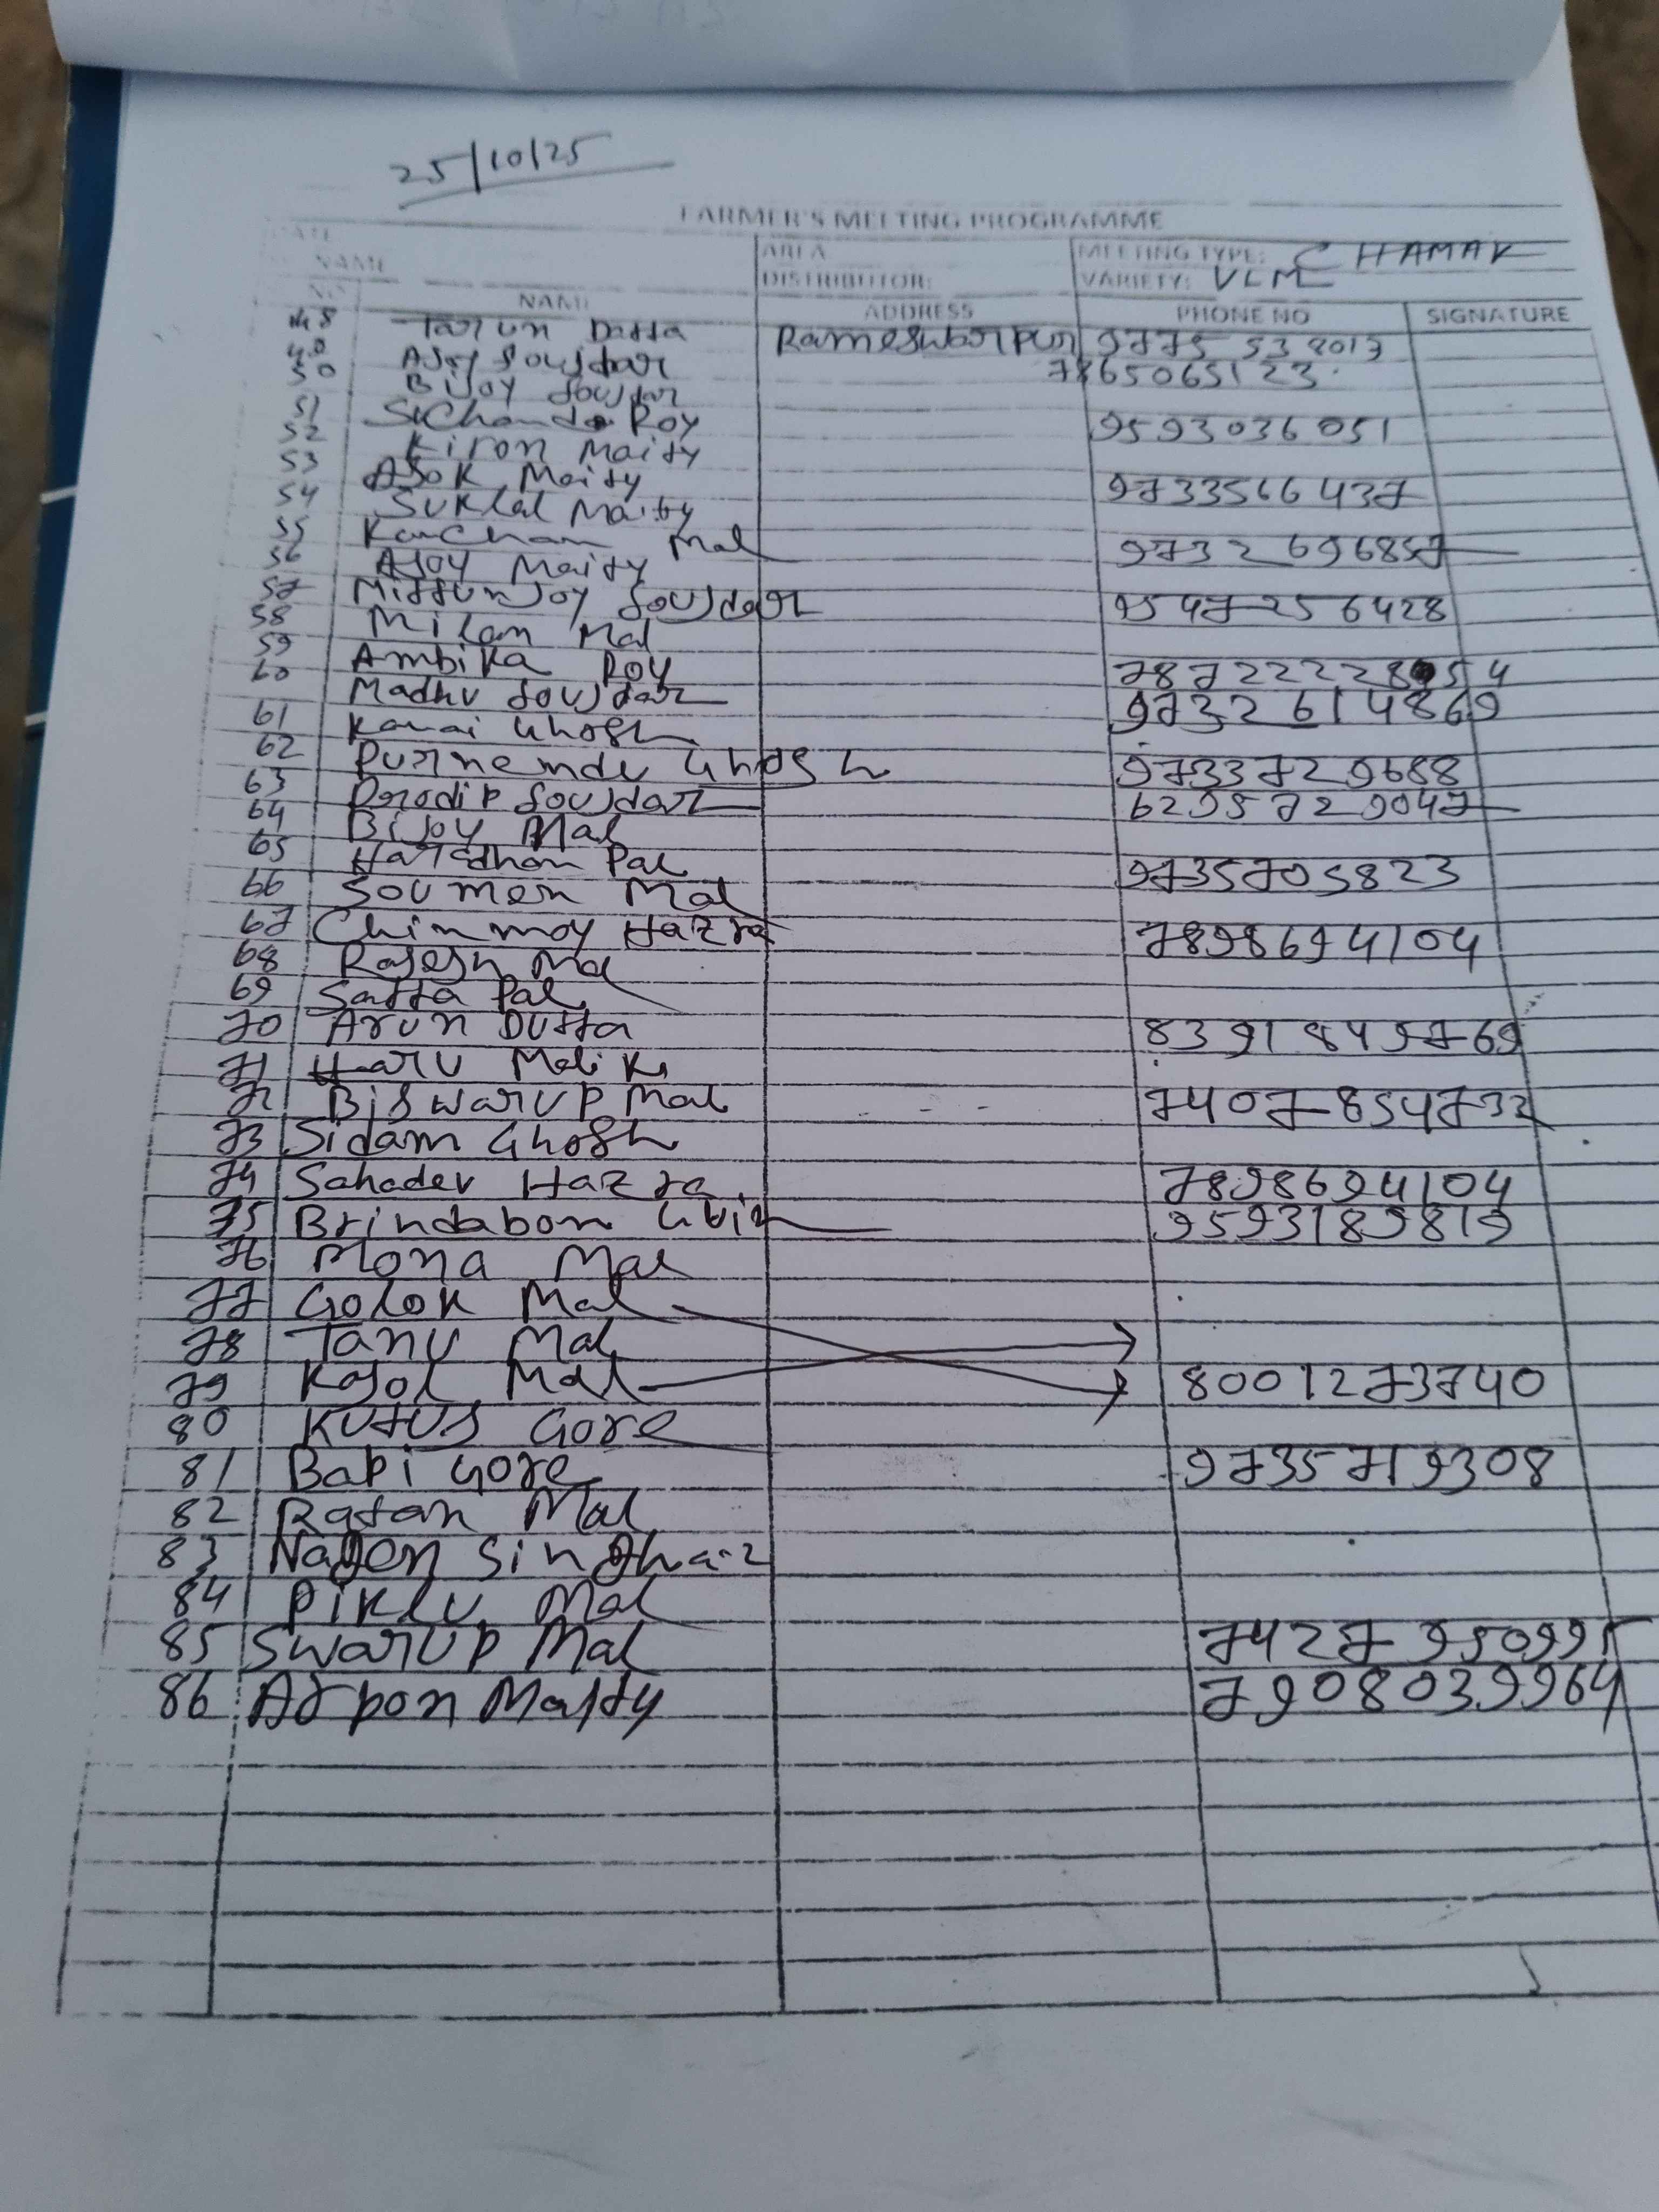 25/10/25
FARMER'S MEETING PROGRAMME
DATE AREA MEETING TYPE: CHAMAK
NAME DISTRIBUTOR: VARIETY: VLM
NO NAME ADDRESS PHONE NO SIGNATURE
48 Tarun Datta Rameswarpur 9775 538013
49 Ajoy foujdar 7865065123
50 Bijoy foujdar
51 Suchanda Roy 9593036051
52 Kiron Maity
53 Asok Maity 9733566437
54 Suklal Maity
55 Kanchan Mal 9732696857
56 Ajoy Maity
57 Mittunjoy foujdar 9547256428
58 Milan Mal
59 Ambika Roy
60 Madhu foujdar 9732614869
61 Kanai Ghosh
62 Purnemdu Ghosh 9733729688
63 Prodip foujdar 6295729047
64 Bijoy Mal
65 Haradhan Pal 9735705823
66 Soumen Mal
67 Chinmoy Hazra 7898694104
68 Rajesh Mal
69 Satta Pal
70 Arun Dutta 8391849769
71 Haru Malik
72 Biswarup Mal 7407854732
73 Sidam Ghosh
74 Sahadev Hazra 7898694104
75 Brindabon 9593189819
76 Mona Mal
77 Golok Mal
78 Tanu Mal
79 Kajol Mal 8001273740
80 Kutus Gore
81 Bapi Gore 9735719308
82 Ratan Mal
83 Nagen
84 Piklu Mal
85 Swarup Mal 7427950995
86 Arpon Maity 7908039964